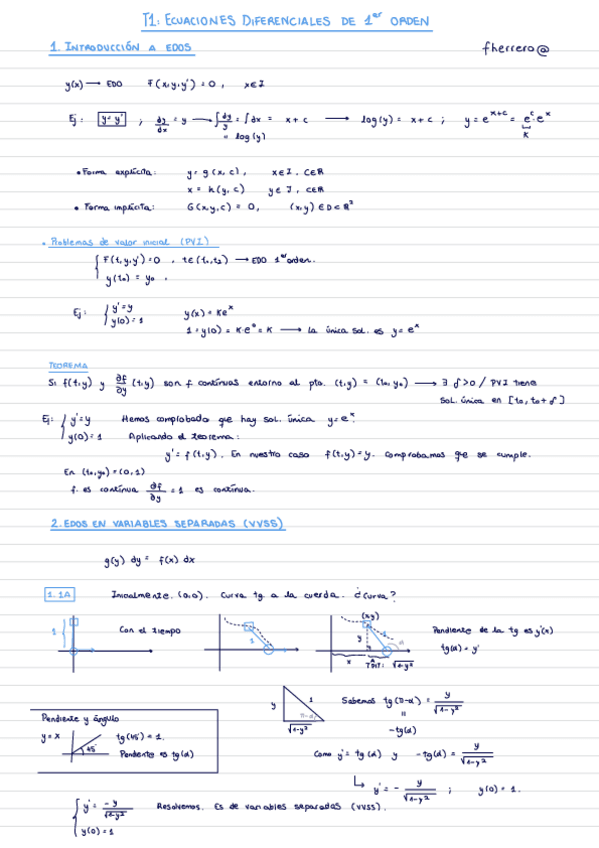 T1: ECUACIONES DIFERENCIALES DE 1er ORDEN
1. INTRODUCCIÓN A EDOS
fherrero@
y(x) → EDO F(x,y,y') = 0, x∈I
Ej: y=y' ; dy/dx = y → ∫dy/y = ∫dx = x+c → log(y) = x+c ; y = e^(x+c) = e^c·e^x
= log(y)
K
• Forma explícita: y = g(x,c), x∈I, c∈R
x = h(y,c) y∈J, c∈R
• Forma implícita: G(x,y,c) = 0, (x,y)∈D⊂R²
• Problemas de valor inicial (PVI)
F(t,y,y') = 0, t∈(t₀,t₂) → EDO 1er orden.
y(t₀) = y₀
Ej: y'=y y(x) = Ke^x
y(0)=1 1=y(0) = K·e⁰ = K → la única sol. es y=e^x
TEOREMA
Si f(t,y) y ∂f/∂y (t,y) son f. contínuas entorno al pto. (t,y) = (t₀,y₀) → ∃ δ>0 / PVI tiene
sol. única en [t₀, t₀+δ]
Ej: y'=y Hemos comprobado que hay sol. única y=e^x
y(0)=1 Aplicando el teorema:
y' = f(t,y). En nuestro caso f(t,y)=y. Comprobamos que se cumple.
En (t₀,y₀) = (0,1)
f. es contínua ∂f/∂y = 1 es contínua.
2. EDOS EN VARIABLES SEPARADAS (VVSS)
g(y) dy = f(x) dx
1.1A Inicialmente. (0,0). Curva tg. a la cuerda. ¿Curva?
1 Con el tiempo 1 (x,y) 1 y x Pendiente de la tg es y'(x)
tg(α) = y'
√1-y²
y 1 π-α √1-y² Sabemos tg(π-α) = y/√1-y²
=
-tg(α)
Pendiente y ángulo
y=x 45° tg(45°) = 1.
Pendiente es tg(α)
Como y' = tg(α) y -tg(α) = y/√1-y²
↳ y' = - y/√1-y² ; y(0) = 1.
y' = -y/√1-y² Resolvemos. Es de variables separadas (VVSS).
y(0) = 1